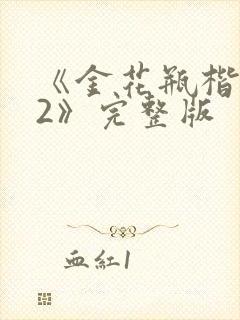 《金花瓶楷
2》完整版
血红1